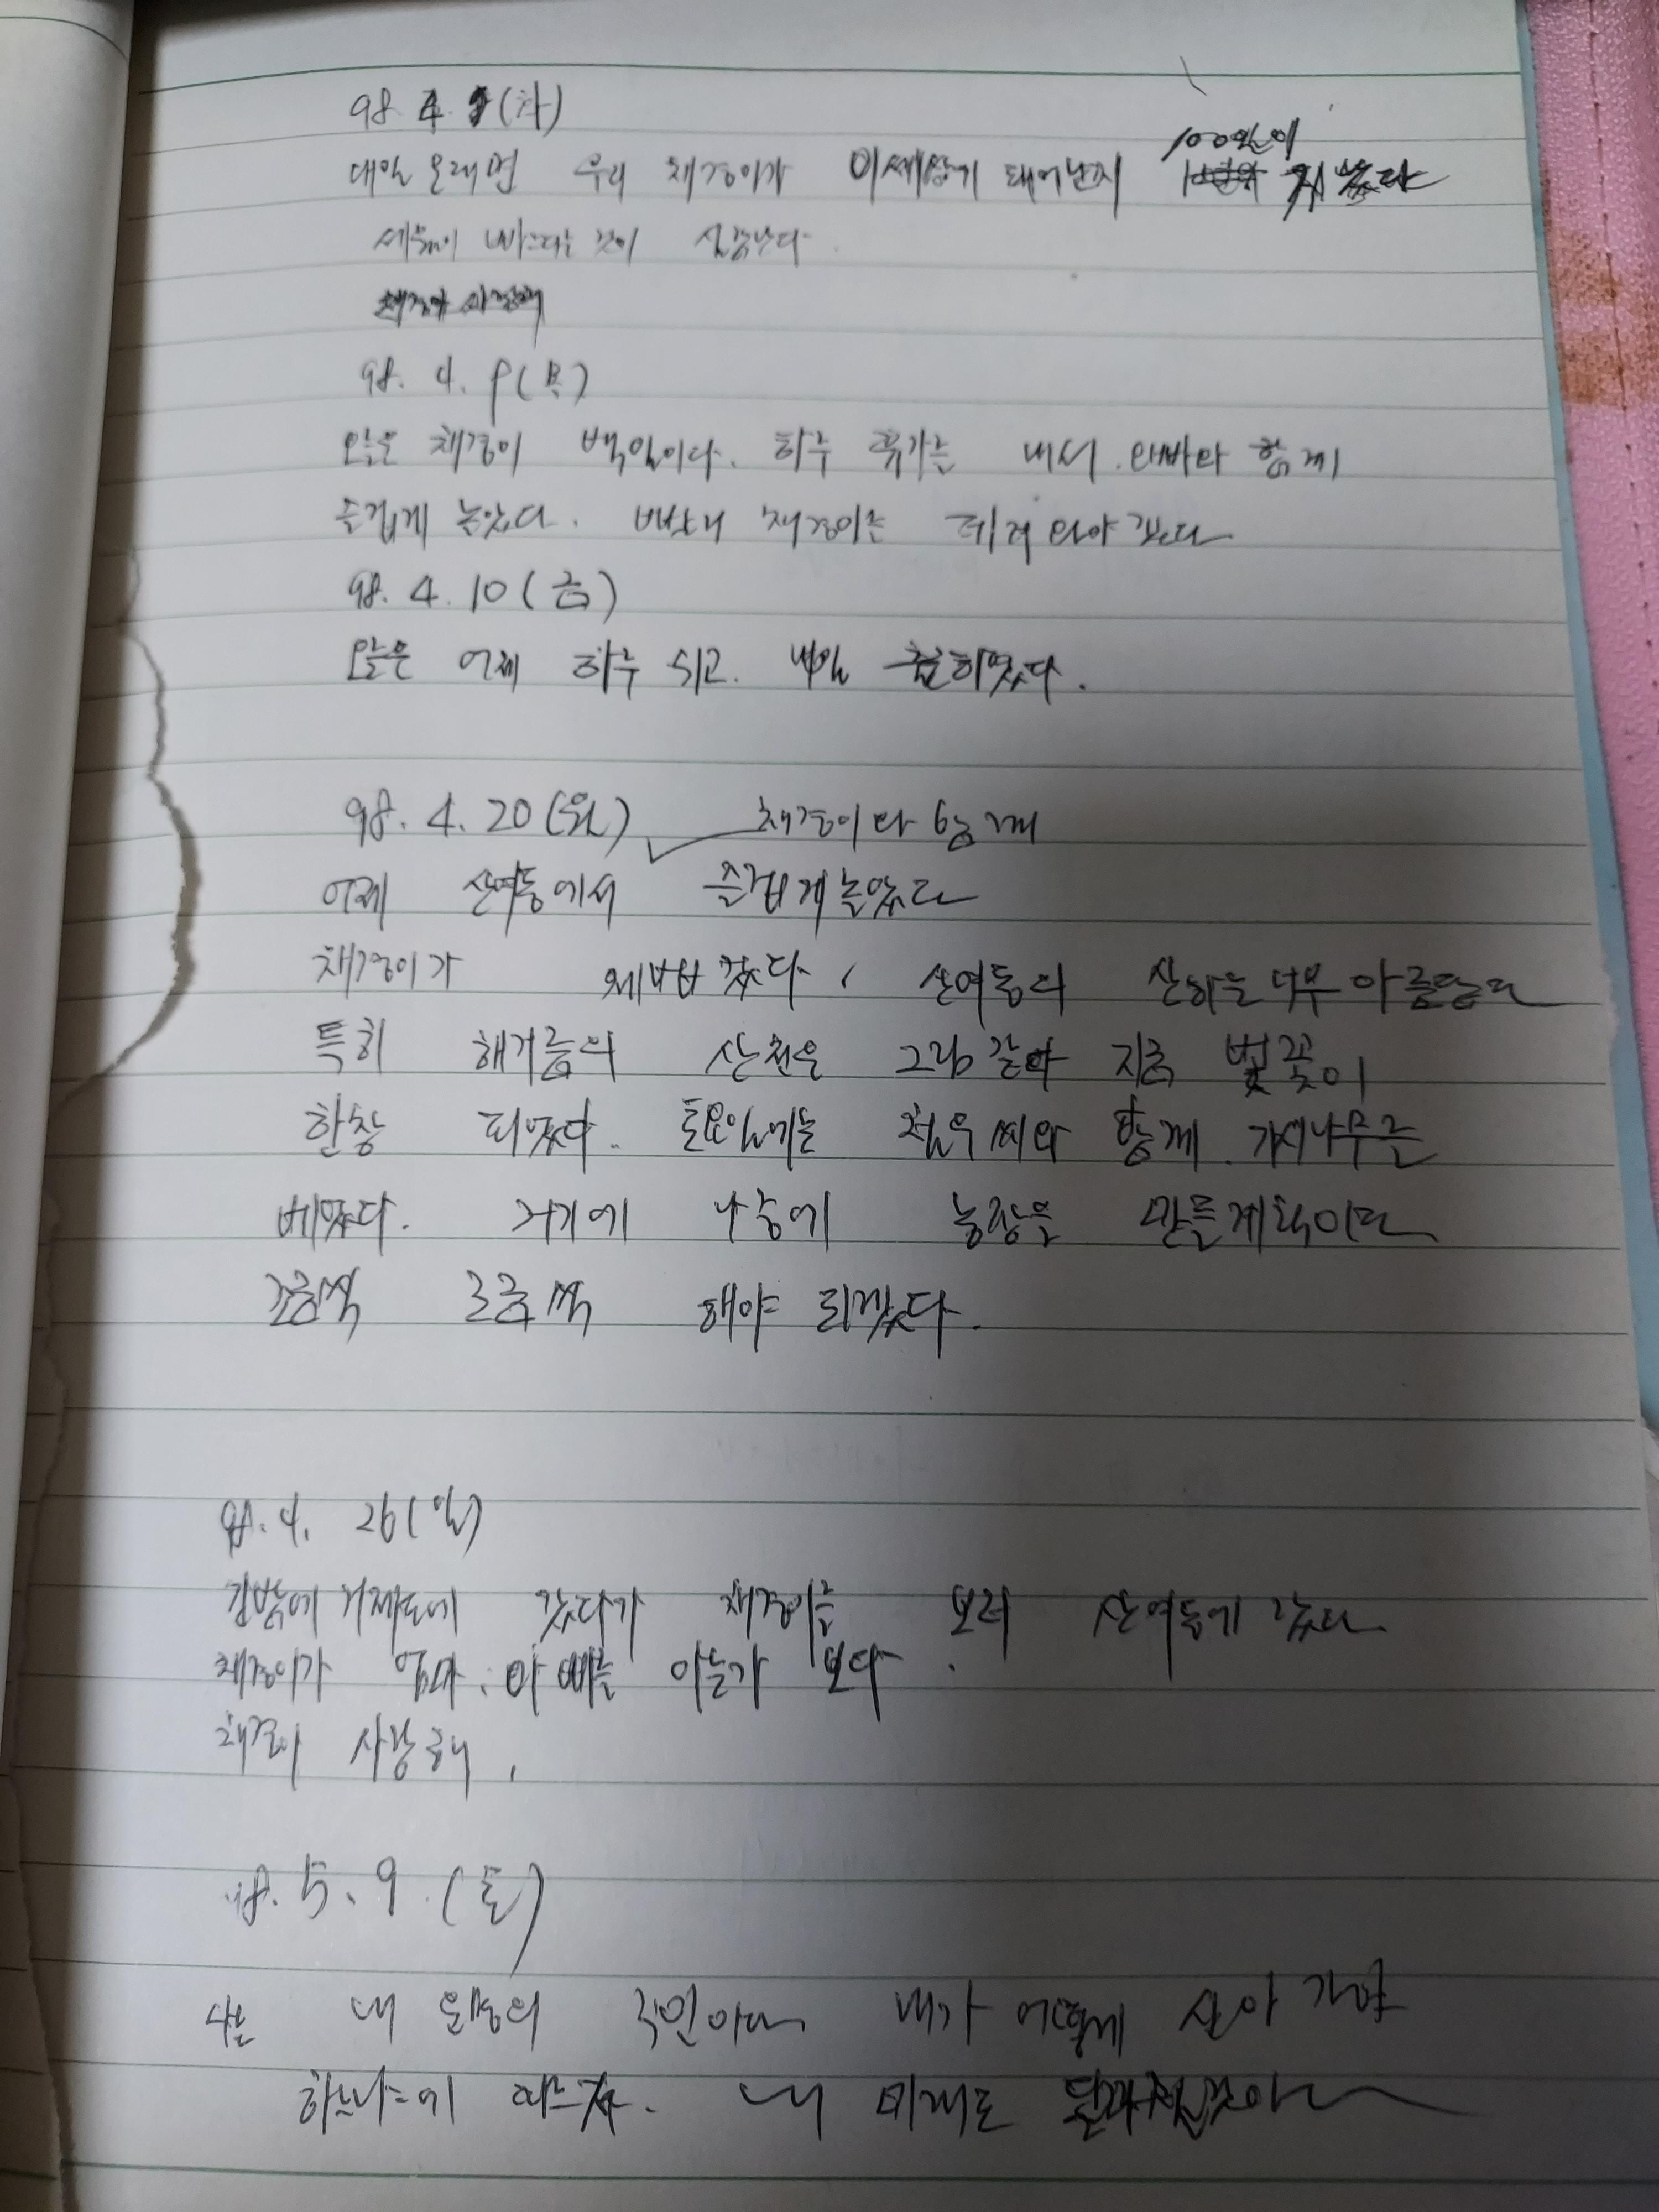 98. 4. 7 (화)
내일 모래면 우리 채경이가 이세상에 태어난지 100일이 지났다
세월이 빠르다는 것이 실감난다.
98. 4. 9 (목)
오늘은 채경이 백일이다. 하루 휴가를 내서 아빠와 함께
즐겁게 놀았다. 채경이를 데려 와야 겠다
98. 4. 10 (금)
오늘은 어제 하루 쉬고. 출근하였다.
98. 4. 20 (월) 채경이와 함께
어제 산여동에서 즐겁게놀았다
채경이가 제법 컸다. 산여동의 산하는 너무 아름답다
특히 해거름의 산천은 그림 같아 지금 벚꽃이
한창 피었다. 토요일에는 씨와 함께 가시나무를
베었다. 거기에 나중에 농장을 만들계획이다
조금씩 조금씩 해야 되겠다.
98. 4. 26 (일)
거제도에 갔다가 채경이를 보러 산여동에 갔다
채경이가 엄마. 아빠를 아는가 보다.
채경이 사랑해.
98. 5. 9. (토)
나는 내 운명의 주인이다 내가 어떻게 살아 가야
하느냐에 따라. 내 미래도 달라질것이다